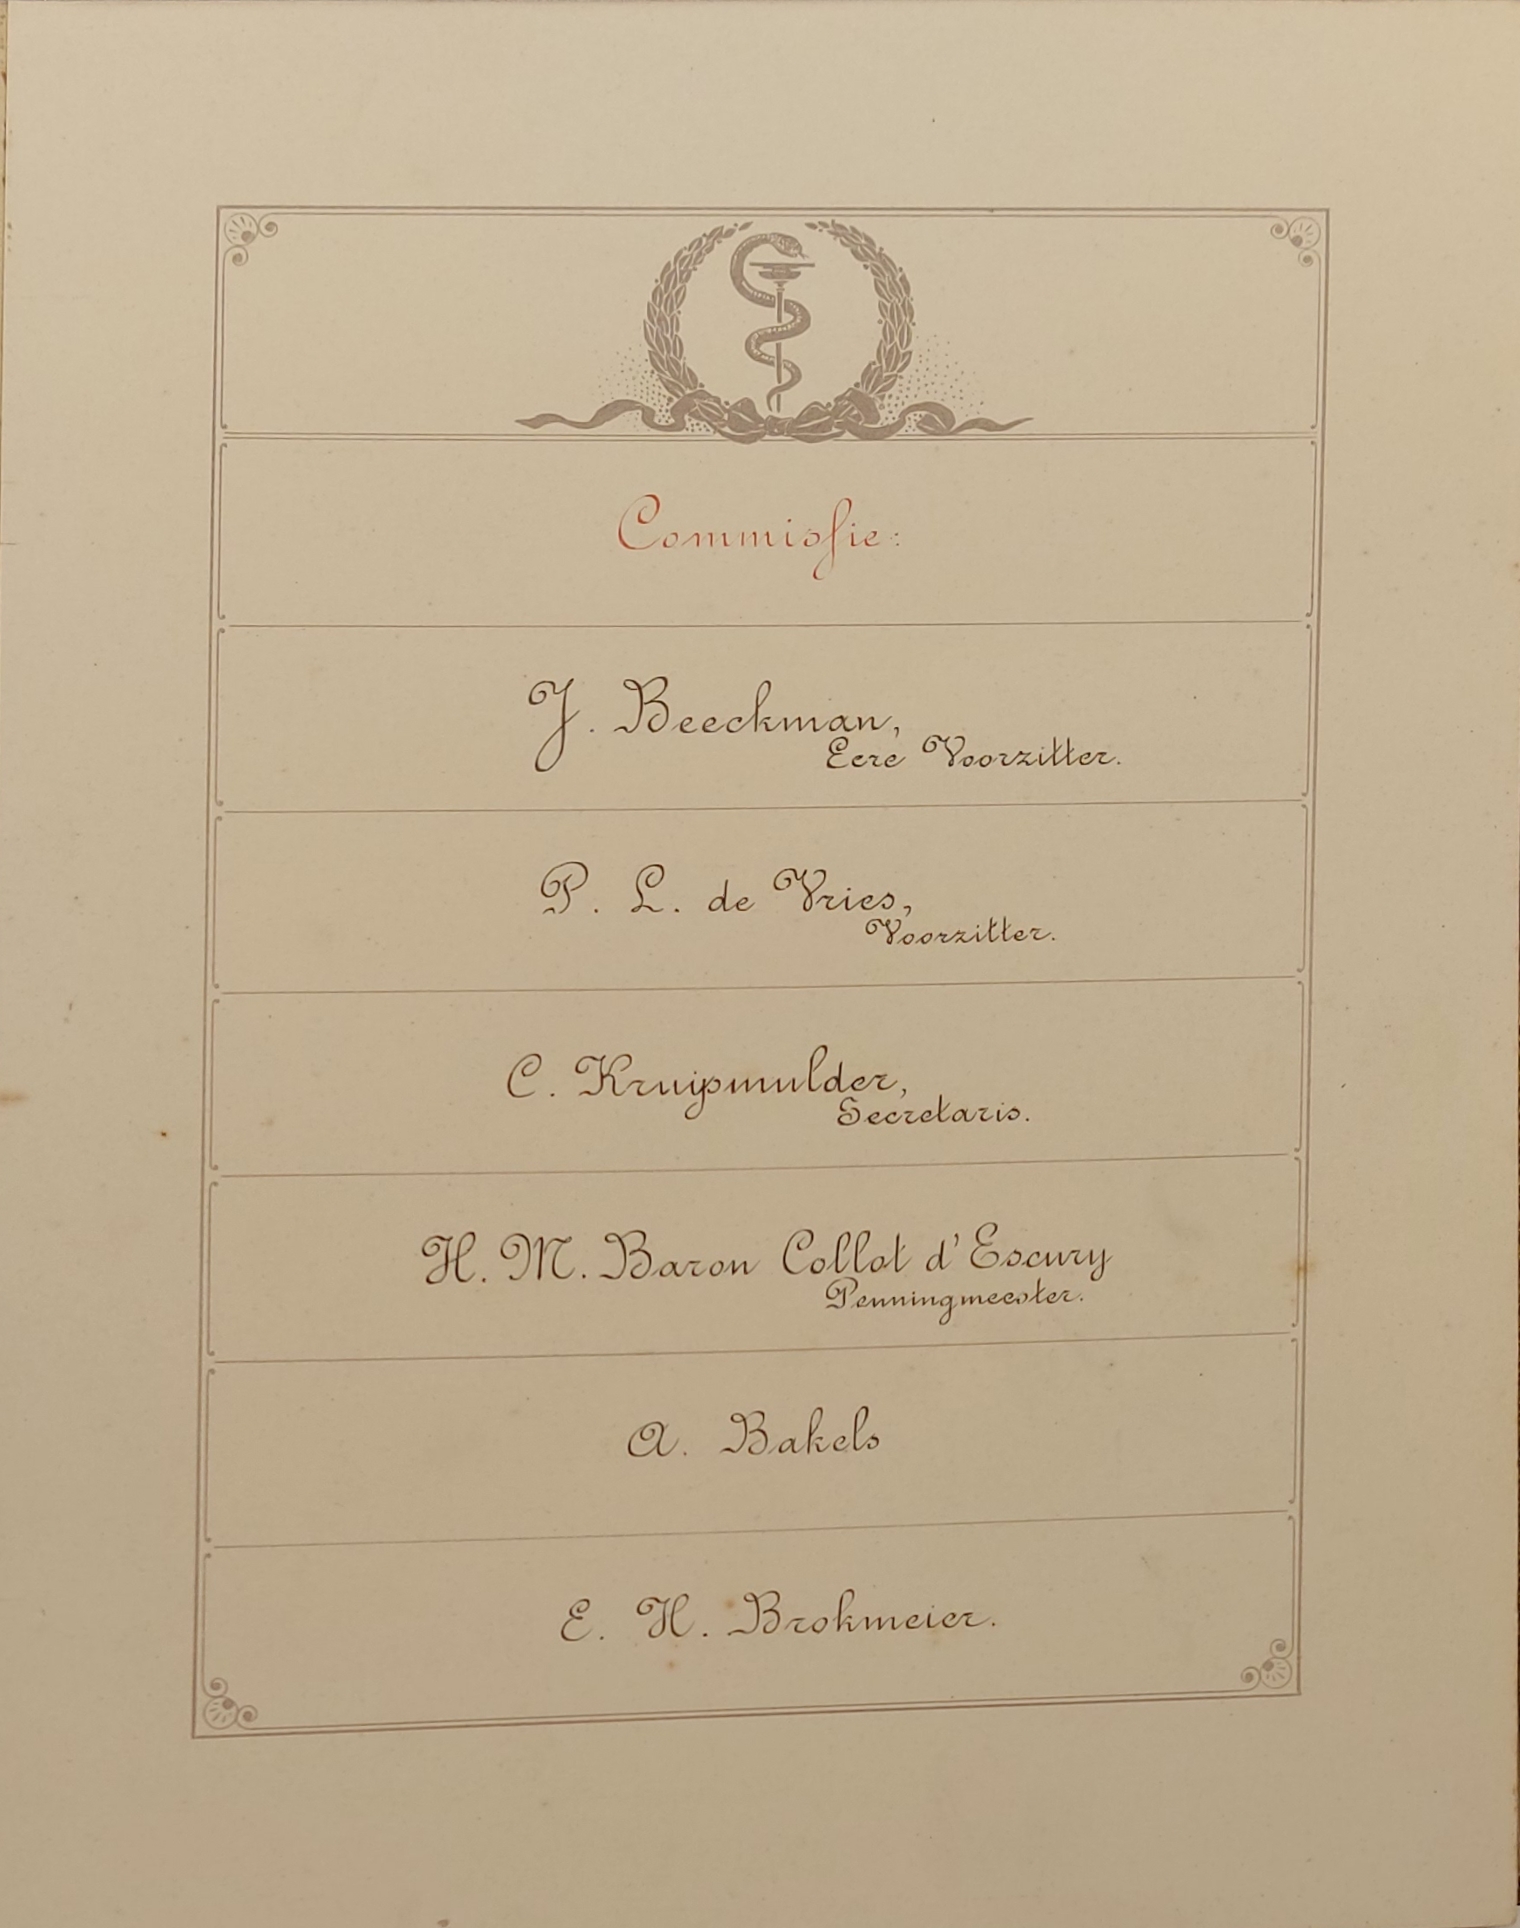 Commissie:
J. Beeckman,
Eere Voorzitter.
P. L. de Vries,
Voorzitter.
C. Kruijsmulder,
Secretaris.
H. M. Baron Collot d'Escury
Penningmeester.
A. Bakels
E. H. Brokmeier.